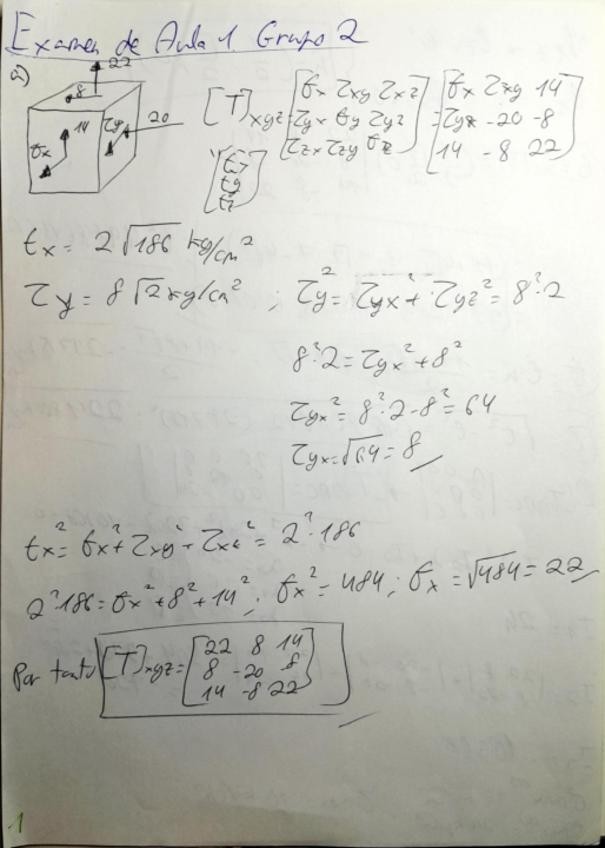 Examen de Aula 1 Grupo 2
a)
22
8
14
20
σx
τy
[T]xyz = [σx τxy τxz; τyx σy τyz; τzx τzy σz] = [σx τxy 14; τyx -20 -8; 14 -8 22]
[tx; ty; tz]
tx = 2√186 kg/cm²
τy = 8√2 kg/cm² ; τy² = τyx² + τyz² = 8²·2
8²·2 = τyx² + 8²
τyx² = 8²·2 - 8² = 64
τyx = √64 = 8
tx² = σx² + τxy² + τxz² = 2²·186
2²·186 = σx² + 8² + 14² ; σx² = 484 ; σx = √484 = 22
Por tanto [T]xyz = [22 8 14; 8 -20 -8; 14 -8 22]
1